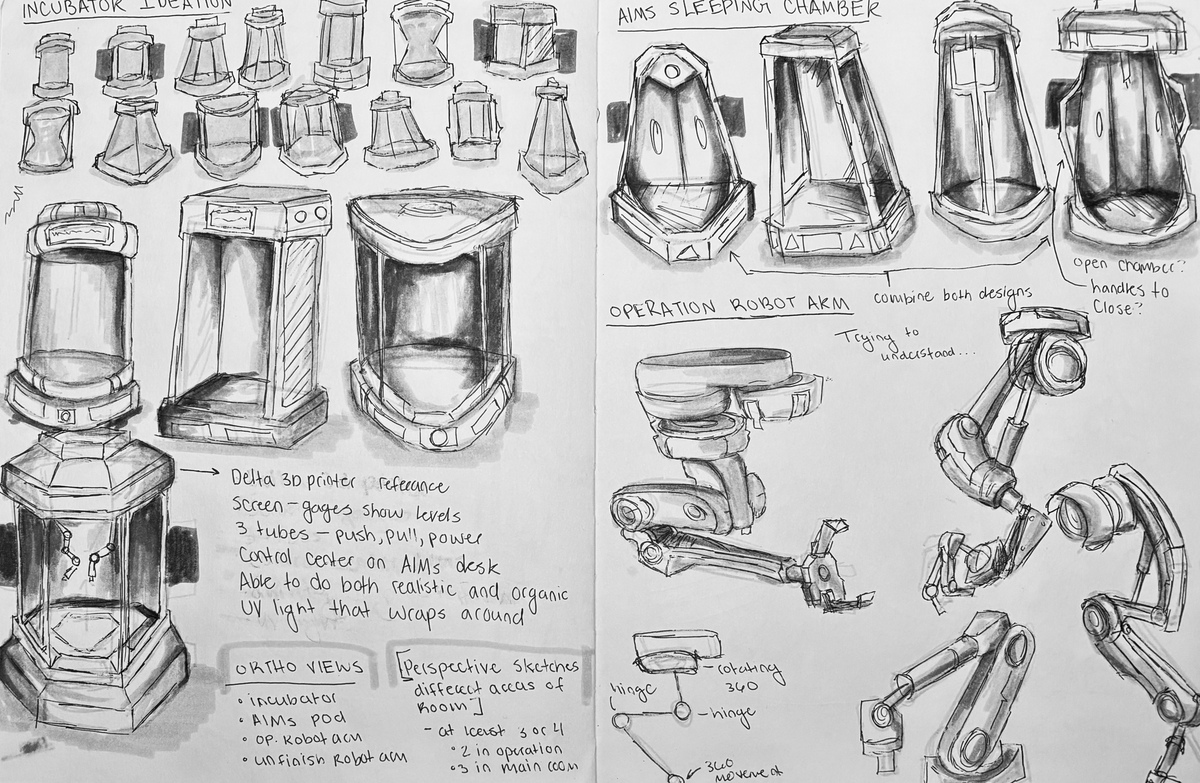 INCUBATOR IDEATION
Delta 3D printer reference
Screen - gages show levels
3 tubes - push, pull, power
Control center on AIMs desk
Able to do both realistic and organic
UV light that wraps around
ORTHO VIEWS
• incubator
• AIMs pod
• op. Robot arm
• unfinish Robot arm
[Perspective Sketches
different areas of
Room]
- at least 3 or 4
• 2 in operation
• 3 in main room
AIMS SLEEPING CHAMBER
open chamber?
handles to
Close?
combine both designs
OPERATION ROBOT ARM
Trying to
understand...
rotating
360
hinge
hinge
360
movement